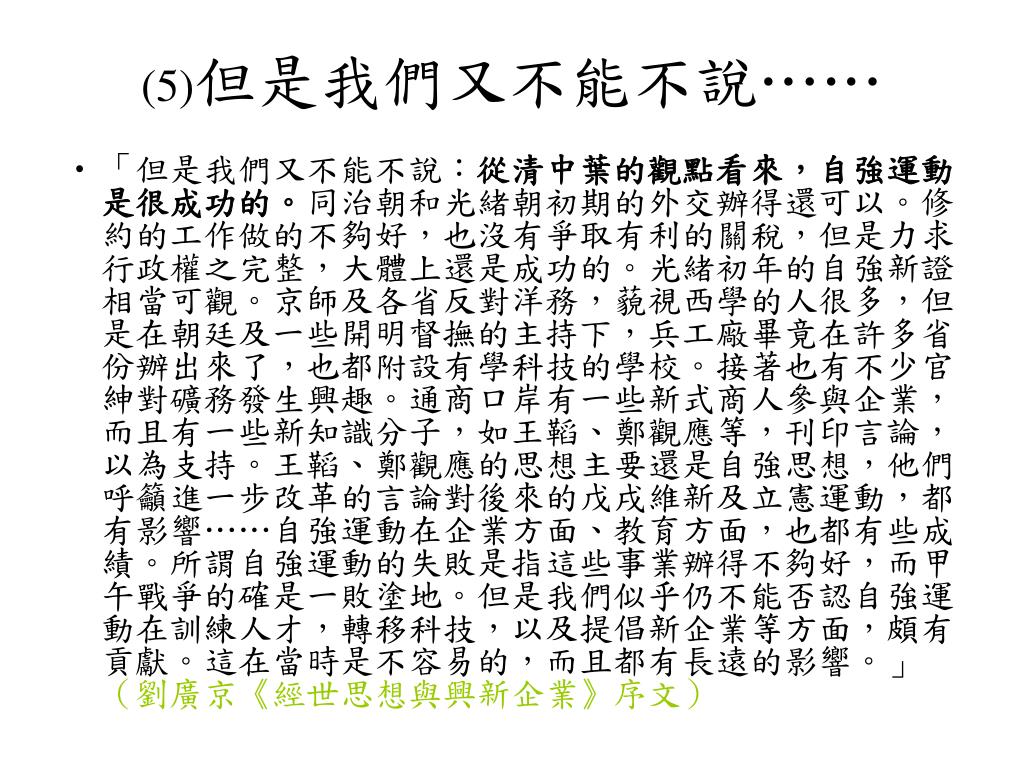 (5)但是我們又不能不說……
• 「但是我們又不能不說：從清中葉的觀點看來，自強運動
是很成功的。同治朝和光緒朝初期的外交辦得還可以。修
約的工作做的不夠好，也沒有爭取有利的關稅，但是力求
行政權之完整，大體上還是成功的。光緒初年的自強新證
相當可觀。京師及各省反對洋務，藐視西學的人很多，但
是在朝廷及一些開明督撫的主持下，兵工廠畢竟在許多省
份辦出來了，也都附設有學科技的學校。接著也有不少官
紳對礦務發生興趣。通商口岸有一些新式商人參與企業，
而且有一些新知識分子，如王韜、鄭觀應等，刊印言論，
以為支持。王韜、鄭觀應的思想主要還是自強思想，他們
呼籲進一步改革的言論對後來的戊戌維新及立憲運動，都
有影響……自強運動在企業方面、教育方面，也都有些成
績。所謂自強運動的失敗是指這些事業辦得不夠好，而甲
午戰爭的確是一敗塗地。但是我們似乎仍不能否認自強運
動在訓練人才，轉移科技，以及提倡新企業等方面，頗有
貢獻。這在當時是不容易的，而且都有長遠的影響。」
（劉廣京《經世思想與興新企業》序文）